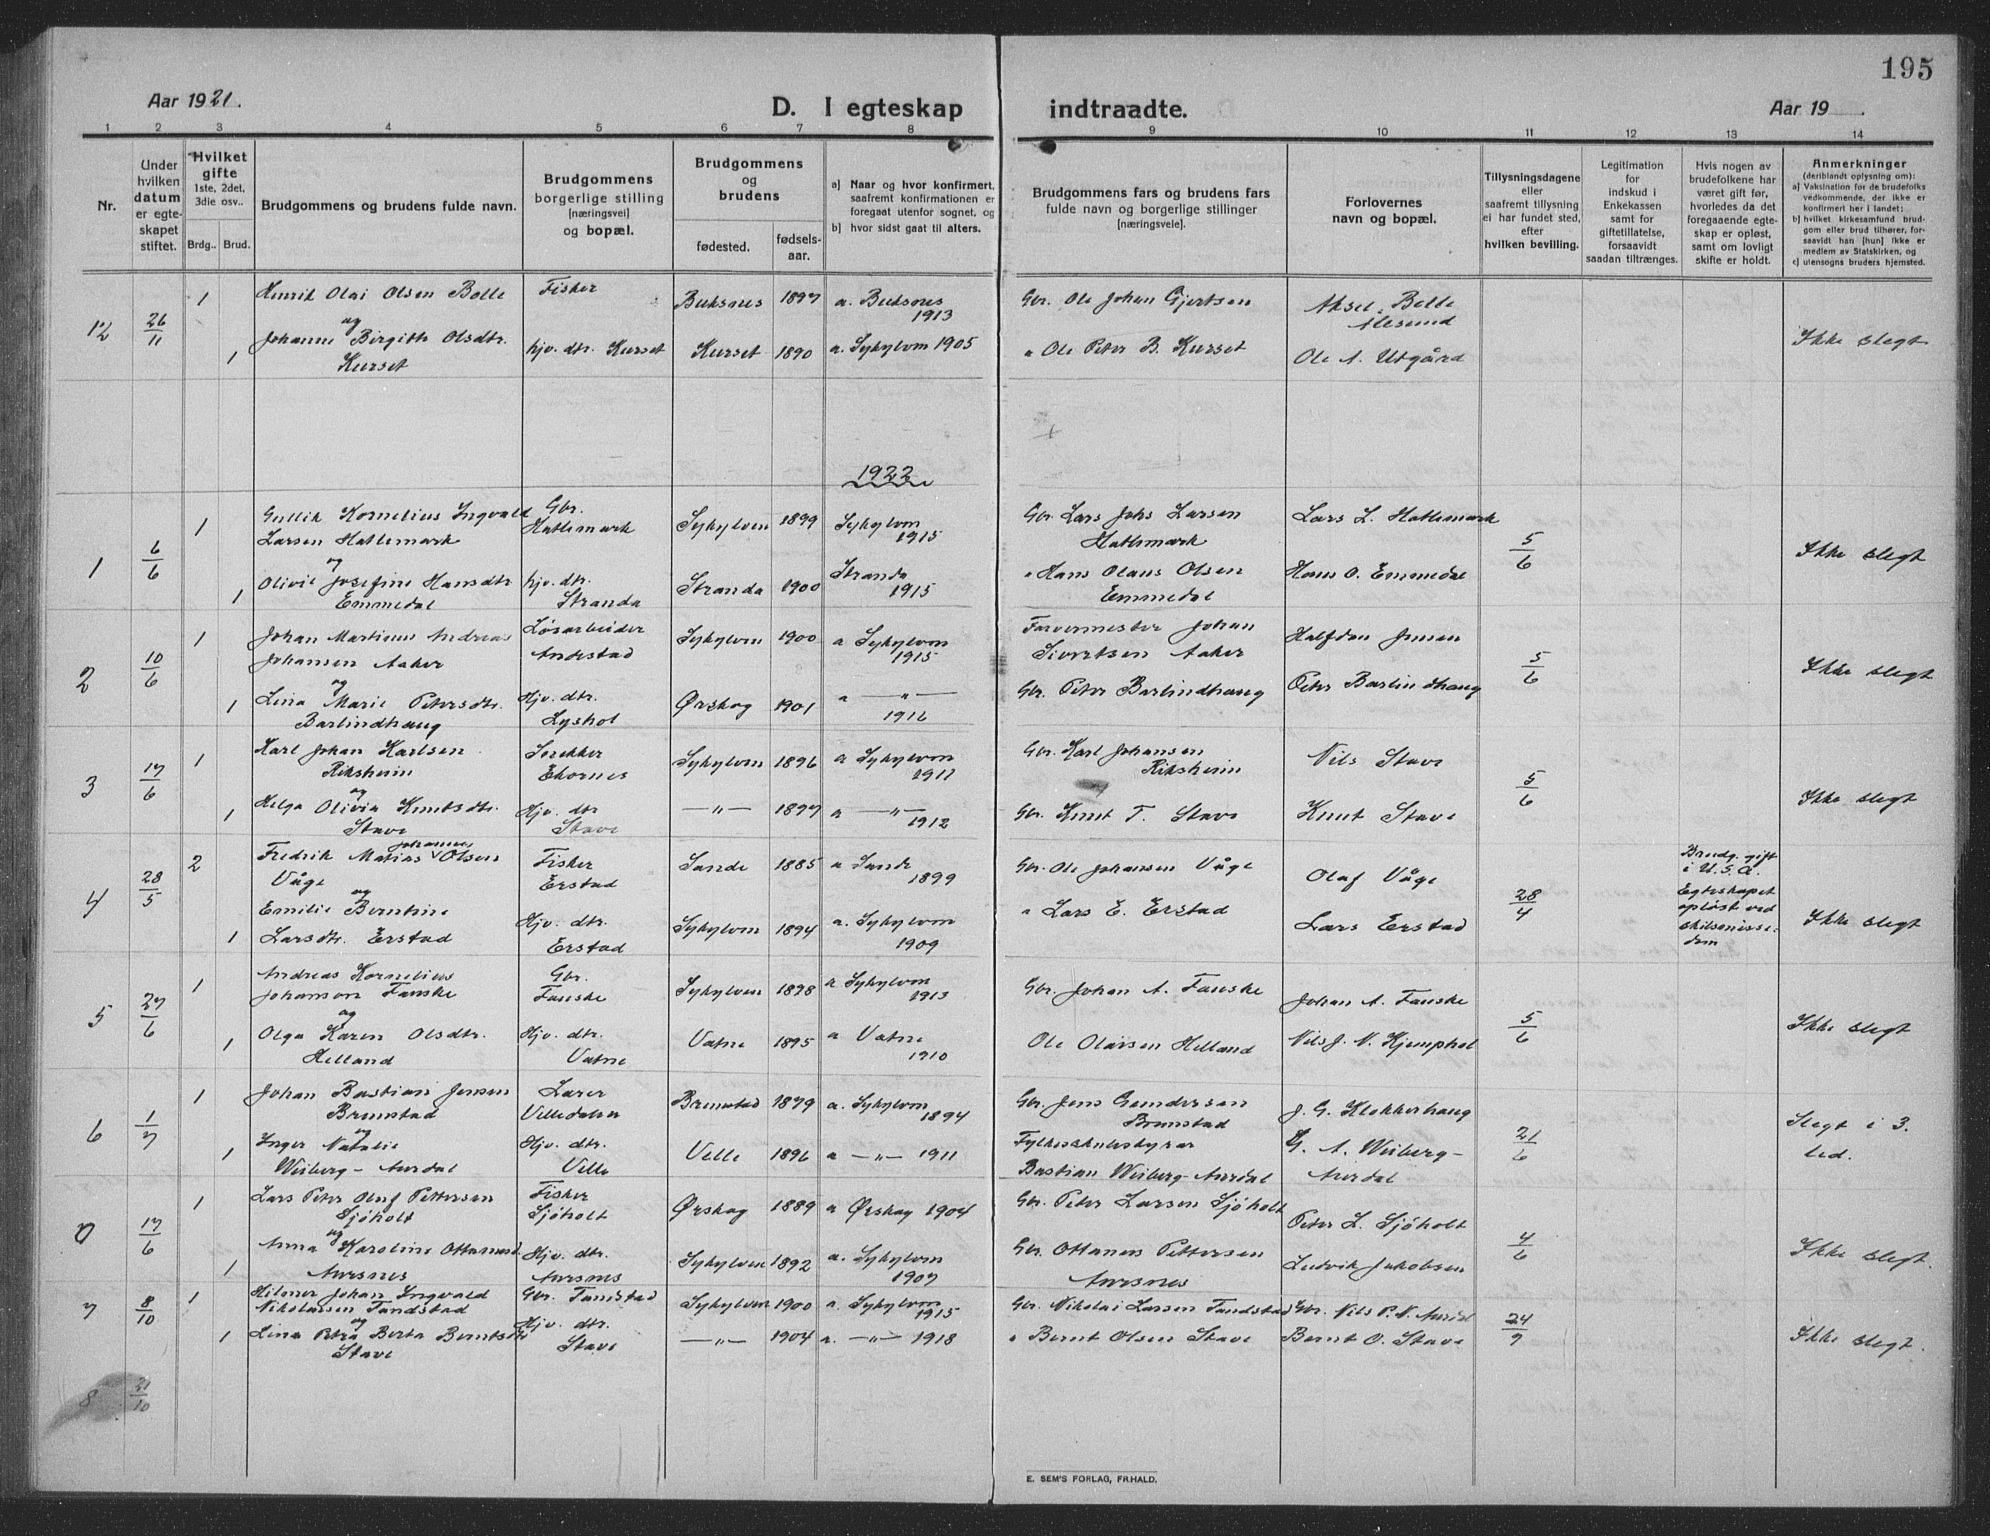 195
Aar 1921.
D. I egteskap indtraadte.
Aar 19
1 2 3 4 5 6 7 8 9 10 11 12 13 14
Nr.
Under hvilken datum er egte- skapet stiftet.
Hvilket gifte 1ste, 2det, 3die osv..
Brdg.. Brud.
Brudgommens og brudens fulde navn.
Brudgommens borgerlige stilling [næringsvei] og bopæl.
Brudgommens og brudens
fødested.
fødsels- aar.
a) Naar og hvor konfirmert, saafremt konfirmationen er foregaat utenfor sognet, og
b) hvor sidst gaat til alters.
Brudgommens fars og brudens fars fulde navn og borgerlige stillinger [næringsveie].
Forlovernes navn og bopæl.
Tillysningsdagene eller saafremt tillysning ei har fundet sted, efter hvilken bevilling.
Legitimation for indskud i Enkekassen samt for giftetillatelse, forsaavidt saadan tiltrænges.
Hvis nogen av brudefolkene har været gift før, hvorledes da det foregaaende egte- skap er opløst, samt om lovligt skifte er holdt.
Anmerkninger (deriblandt oplysning om):
a) Vaksination for de brudefolks vedkommende, der ikke er konfirmert her i landet;
b) hvilket kirkesamfund brud- gom eller brud tilhører, for- saavidt han [hun] ikke er medlem av Statskirken, og
c) utensogns bruders hjemsted.
12 26/11 1 Henrik Olai Olsen Bolle Fisker Buksnes 1897 a. Buksnes 1913 Gbr. Ole Johan Gjertsen Aksel Bolle Ålesund
og
1 Johanne Birgitte Olsdtr. Kurset hjv. dtr. Kurset Kurset 1890 a. Sykylven 1905 " Ole Peter B. Kurset Ole A. Utgård Ikke slegt
1922
1 6/6 1 Gullik Kornelius Ingvald Larsen Hatlemark Gbr. Hatlemark Sykylven 1899 Sykylven 1915 Gbr. Lars Johs Larsen Hatlemark Lars L. Hatlemark 5/6 Ikke slegt
og
1 Olivie Josefine Hansdtr Emmedal hjv. dtr. Stranda Stranda 1900 Stranda 1915 " Hans Olaus Olsen Emmedal Hans O. Emmedal
2 10/6 1 Johan Martinus Andreas Johansen Aaker Løsarbeider Andestad Sykylven 1900 a Sykylven 1915 Farvermester Johan Sivertsen Aaker Halfdan Jensen 5/6 Ikke slegt
og
1 Lina Marie Petersdtr. Barlindhaug Hjv. dtr. Lyshol Ørskog 1901 a — " — 1916 Gbr. Peter Barlindhaug Peter Barlindhaug
3 17/6 1 Karl Johan Karlsen Riksheim Snekker Ekornes Sykylven 1896 a Sykylven 1911 Gbr. Karl Johansen Riksheim Nils Stave 5/6 Ikke slegt
og
1 Helga Olivia Knutsdtr. Stave Hjv. dtr Stave — " — 1897 a — " — 1912 Gbr. Knut T. Stave Knut Stave
4 28/5 2 Fredrik Matias Johannes Olsen Våge Fisker Erstad Sande 1885 a Sande 1899 Gbr. Ole Johansen Våge Olaf Våge 28/4 Brudg. gift i U.S.A. Egteskapet opløst ved skilsmisse- dom Ikke slegt
og
1 Emilie Berntine Larsdtr. Erstad Hjv. dtr. Erstad Sykylven 1894 a. Sykylven 1909 " Lars E. Erstad Lars Erstad
5 27/6 1 Andreas Kornelius Johanson Fauske Gbr. Fauske Sykylven 1898 a Sykylven 1913 Gbr. Johan A. Fauske Johan A. Fauske 5/6 Ikke slegt
og
1 Olga Karen Olsdtr. Helland Hjv. dtr. Vatne Vatne 1895 a Vatne 1910 Ole Olaisen Helland Nils J. N. Kjemphol
6 1/7 1 Johan Bastian Jensen Brunstad Lærer Velledalen Brunstad 1879 a. Sykylven 1894 Gbr. Jens Gundersen Brunstad J. G. Klokkerhaug 21/6 Slegt i 3. led.
og
1 Inger Natalie Weiberg-Aurdal Hjv. dtr. Velle Velle 1896 a — " — 1911 Fylkesskulestyrar Bastian Weiberg-Aurdal G. A. Weiberg- Aurdal
0 17/6 1 Lars Peter Oluf Pettersen Sjøholt Fisker Sjøholt Ørskog 1889 a Ørskog 1904 Gbr. Peter Larsen Sjøholt Peter L. Sjøholt 4/6 Ikke slegt.
og
1 Anna Karoline Ottarsd. Aursnes Hjv. dtr. Aursnes Sykylven 1892 a. Sykylven 1907 Gbr. Ottanus Pettersen Aursnes Ludvik Jakobsen
7 8/10 1 Hilmer Johan Ingvald Nikolaisen Tandstad Gbr. Tandstad Sykylven 1900 a. Sykylven 1915 Gbr. Nikolai Larsen Tandstad Gbr. Nils P. N. Aurdal 24/9 Ikke slegt.
og
1 Lina Petra Berta Berntsdtr Stave Hjv. dtr. Stave — " — 1904 a. — " — 1918 " Bernt Olsen Stave Bernt O. Stave
8 21/10
E. SEM'S FORLAG, FR.HALD.